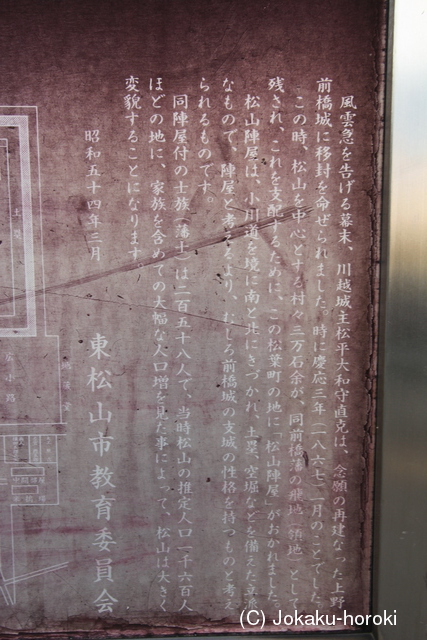 風雲急を告げる幕末、川越城主松平大和守直克は、念願の再建なった上野
前橋城に移封を命ぜられました。時に慶応三年(一八六七)一月のことでした。
この時、松山を中心とする村々三万石余が、同前橋藩の飛地(領地)として
残され、これを支配するために、この松葉町の地に「松山陣屋」がおかれました。
松山陣屋は、小川道を境に南と北にきづかれ、土塁、空堀などを備えた立派
なもので、陣屋と考えるより、むしろ前橋城の支城の性格を持つものと考え
られるものです。
同陣屋付の士族(藩士)は二百五十八人で、当時松山の推定人口一千六百人
ほどの地に、家族を含めての大幅な人口増を見た事によって、松山は大きく
変貌することになります。
昭和五十四年三月
東松山市教育委員会
土塁
広小路
(C) Jokaku-horoki